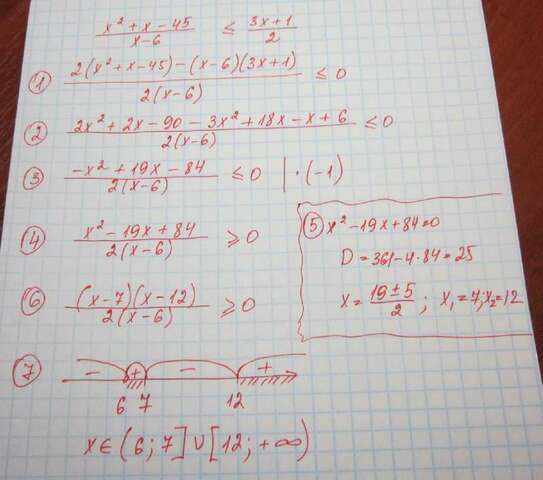 (x² + x − 45)/(x−6) ≤ (3x+1)/2
① (2(x² + x − 45) − (x−6)(3x+1))/(2(x−6)) ≤ 0
② (2x² + 2x − 90 − 3x² + 18x − x + 6)/(2(x−6)) ≤ 0
③ (−x² + 19x − 84)/(2(x−6)) ≤ 0 | · (−1)
④ (x² − 19x + 84)/(2(x−6)) ≥ 0
⑤ x² − 19x + 84 = 0
D = 361 − 4 · 84 = 25
x = (19 ± 5)/2 ; x₁ = 7; x₂ = 12
⑥ ((x−7)(x−12))/(2(x−6)) ≥ 0
⑦ − + − +
6 7 12
x ∈ (6; 7] ∪ [12; +∞)